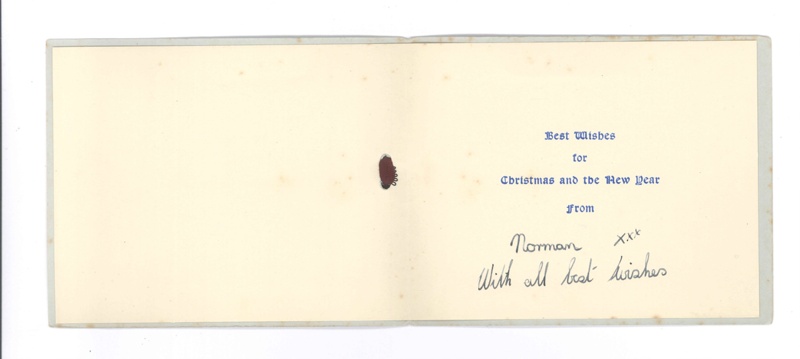 Best Wishes
for
Christmas and the New Year
From
Norman xxx
With all best wishes